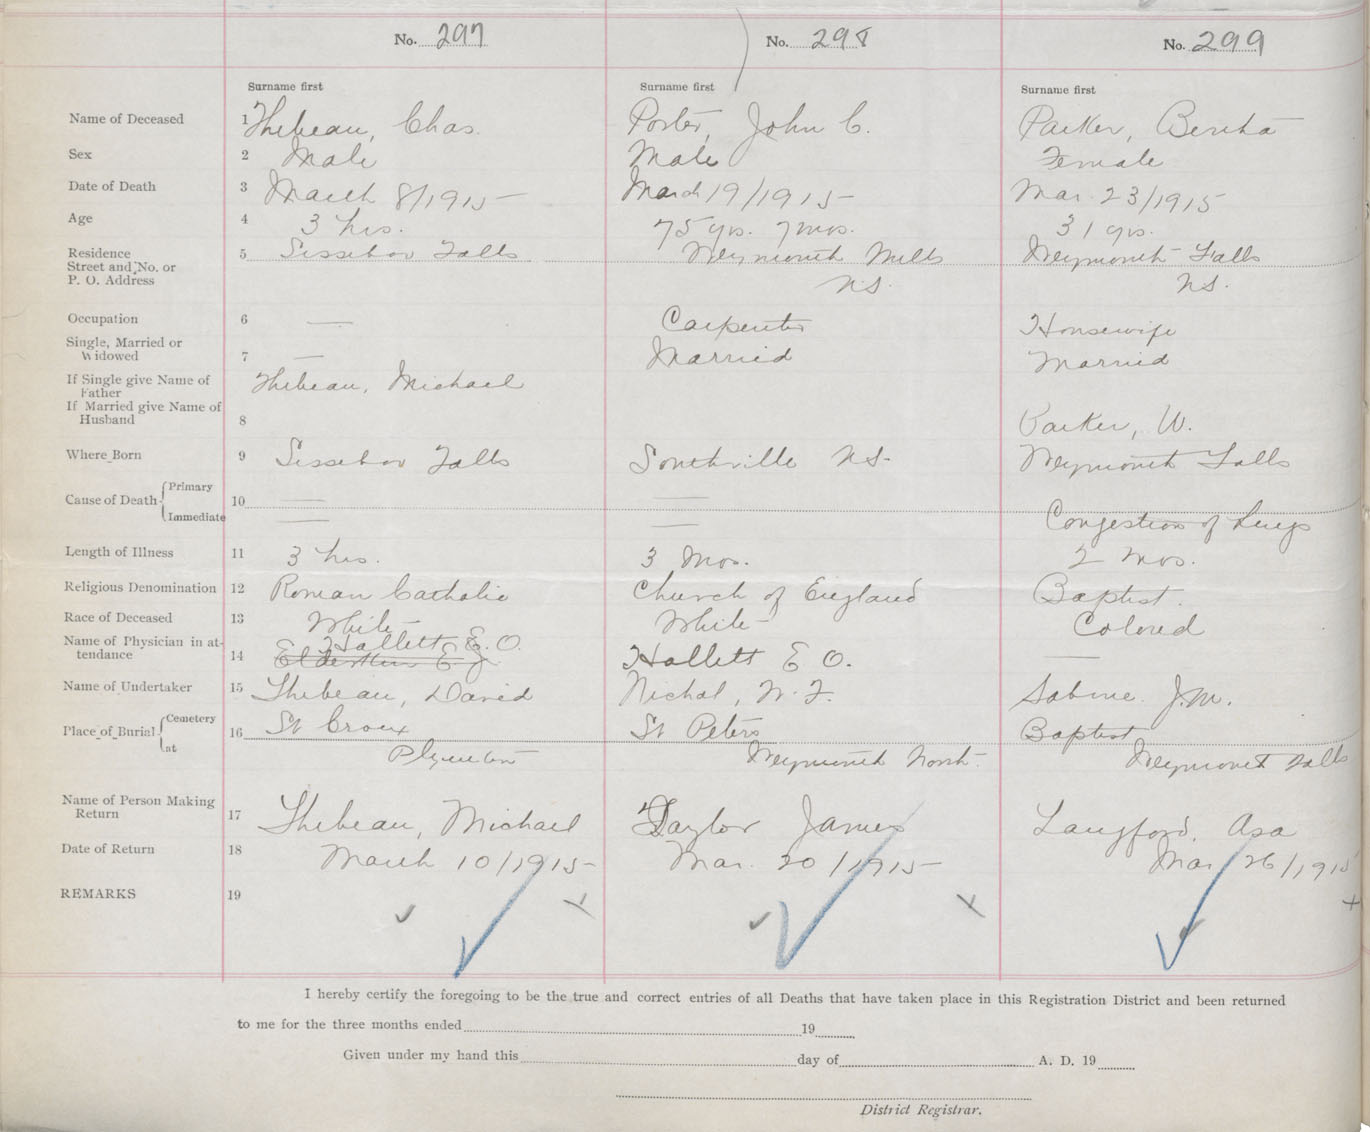 No. 297 No. 298 No. 299
Surname first Surname first Surname first
Name of Deceased 1 Thibeau, Chas. Porter, John C. Parker, Bertha
Sex 2 Male Male Female
Date of Death 3 March 8/1915 March 19/1915 Mar. 23/1915
Age 4 3 hrs. 75 yrs. 7 mos. 31 yrs.
Residence 5 Sissiboo Falls Weymouth Mills Weymouth Falls
Street and No. or
P. O. Address N.S. N.S.
Occupation 6 — Carpenter Housewife
Single, Married or
Widowed 7 — Married Married
If Single give Name of
Father Thibeau, Michael
If Married give Name of
Husband 8 Parker, W.
Where Born 9 Sissiboo Falls Southville N.S. Weymouth Falls
Primary
Cause of Death 10 — —
Immediate — — Congestion of Lungs
Length of Illness 11 3 hrs. 3 Mos. 2 mos.
Religious Denomination 12 Roman Catholic Church of England Baptist.
Race of Deceased 13 White White Colored
Name of Physician in at- Hallett E. O.
tendance 14 Elderkin E J Hallett E O. —
Name of Undertaker 15 Thibeau, David Nichol, W. F. Sabine J. M.
Cemetery
Place of Burial 16 St Croix St Peters Baptist
at Plympton Weymouth North. Weymouth Falls
Name of Person Making
Return 17 Thibeau, Michael Taylor James Langford, Asa
Date of Return 18 March 10/1915 Mar. 20/1915 Mar 26/1915
REMARKS 19
I hereby certify the foregoing to be the true and correct entries of all Deaths that have taken place in this Registration District and been returned
to me for the three months ended 19
Given under my hand this day of A. D. 19
District Registrar.